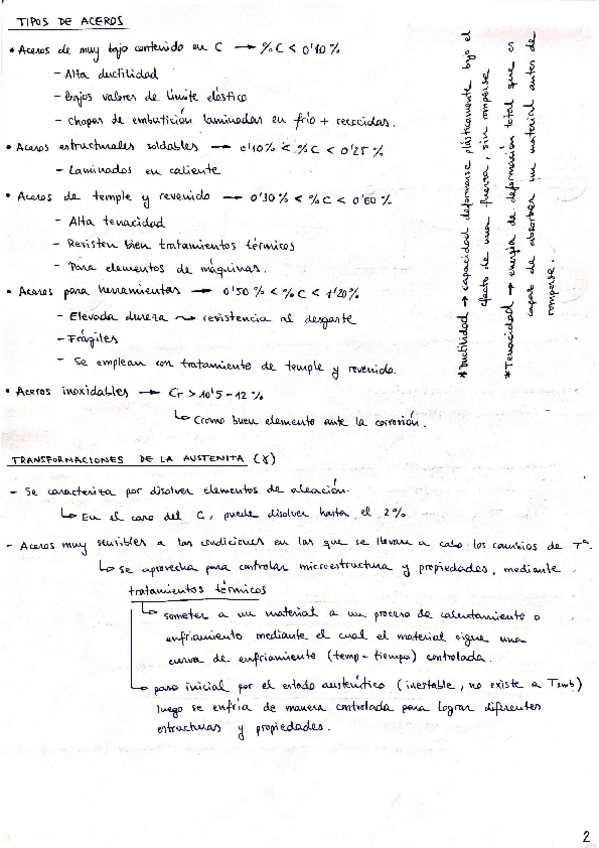 TIPOS DE ACEROS
• Aceros de muy bajo contenido en C → % C < 0'10 %
- Alta ductilidad
- Bajos valores de límite elástico
- Chapas de embutición laminadas en frío + recocidas.
• Aceros estructurales soldables → 0'10% < % C < 0'25 %
- Laminados en caliente
• Aceros de temple y revenido → 0'30 % < % C < 0'60 %
- Alta tenacidad
- Resisten bien tratamientos térmicos
- Para elementos de máquinas.
• Aceros para herramientas → 0'50 % < % C < 1'20%
- Elevada dureza → resistencia al desgaste
- Frágiles
- Se emplean con tratamiento de temple y revenido.
• Aceros inoxidables → Cr > 10'5 - 12 %
↳ Cromo buen elemento ante la corrosión.
* Ductilidad → capacidad deformarse plásticamente bajo el
efecto de una fuerza, sin romperse
* Tenacidad → energía de deformación total que es
capaz de absorber un material antes de
romperse.
TRANSFORMACIONES DE LA AUSTENITA (γ)
- Se caracteriza por disolver elementos de aleación.
↳ En el caso del C, puede disolver hasta el 2%
- Aceros muy sensibles a las condiciones en las que se llevan a cabo los cambios de Tª.
↳ Se aprovecha para controlar microestructura y propiedades, mediante
tratamientos térmicos
↳ someter a un material a un proceso de calentamiento o
enfriamiento mediante el cual el material sigue una
curva de enfriamiento (temp - tiempo) controlada.
↳ paso inicial por el estado austenítico (inestable, no existe a Tamb)
luego se enfría de manera controlada para lograr diferentes
estructuras y propiedades.
2